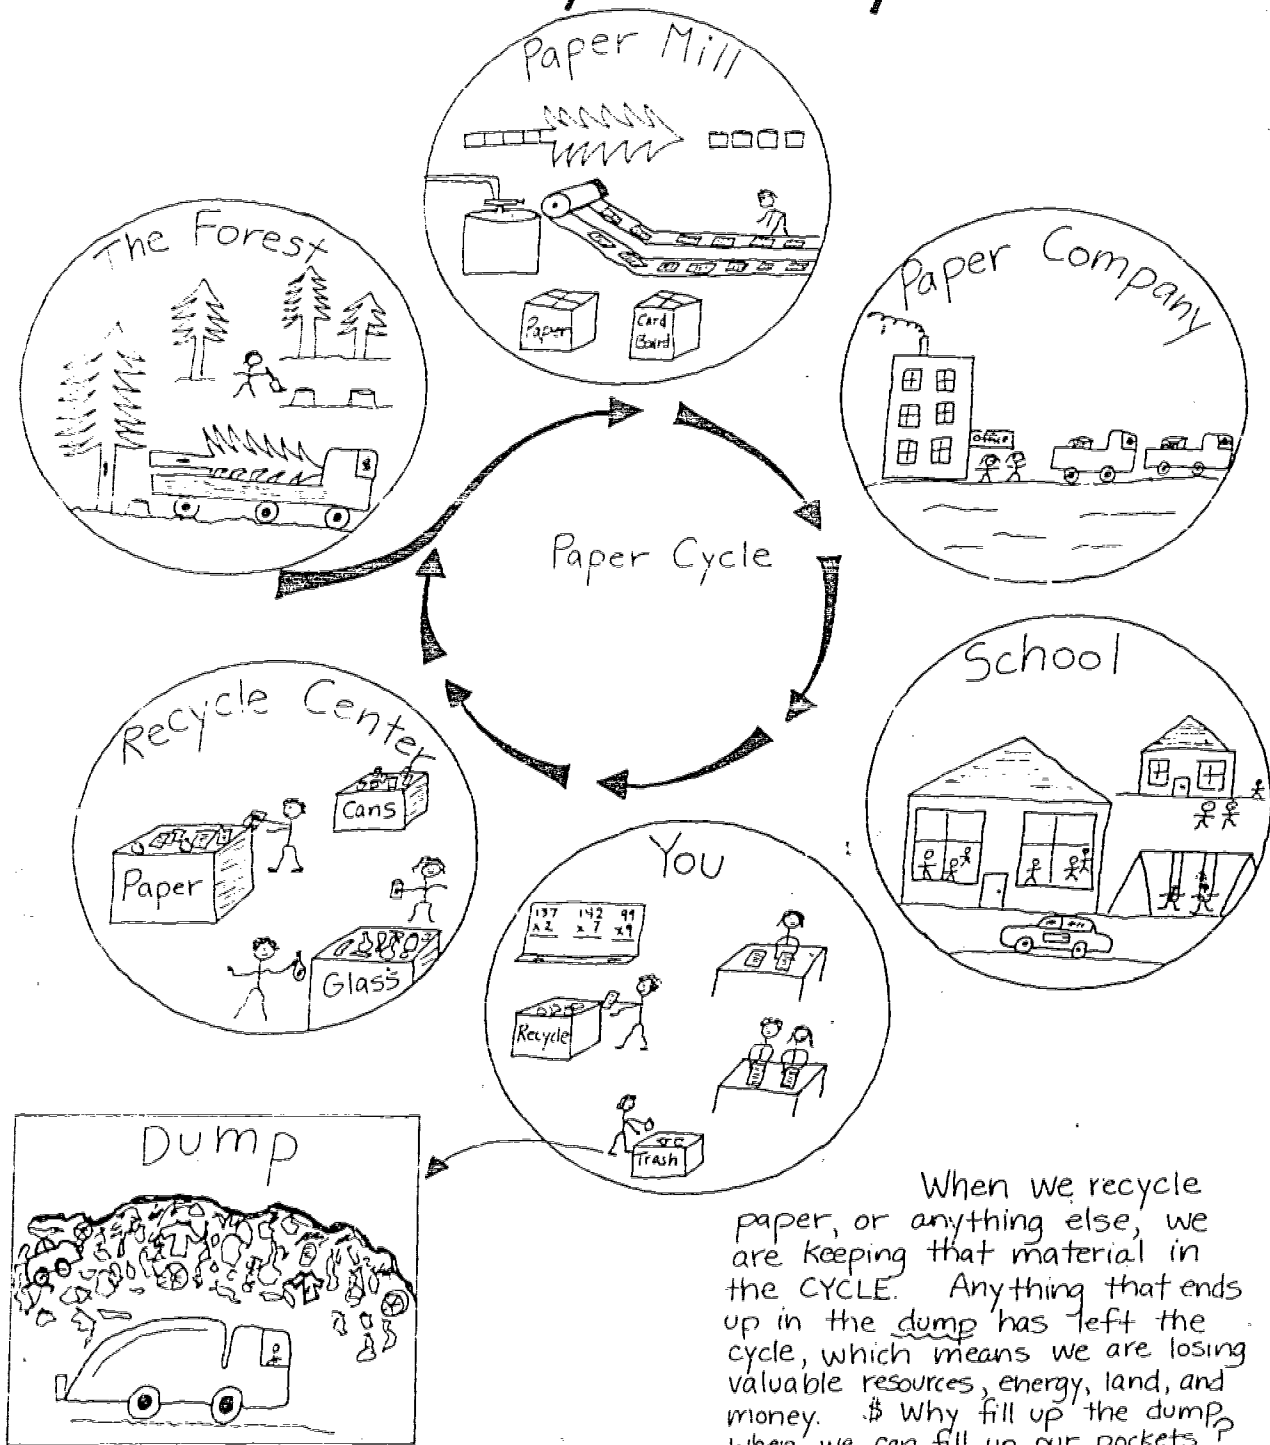 Paper Mill
Paper
Card
Board
The Forest
Paper Company
Office
Paper Cycle
School
Recycle Center
Cans
Paper
Glass
You
137 142 99
x 2 x 7 x 9
Recycle
Trash
Dump
When we recycle
paper, or anything else, we
are keeping that material in
the CYCLE. Anything that ends
up in the dump has left the
cycle, which means we are losing
valuable resources, energy, land, and
money. $ Why fill up the dump,
when we can fill up our pockets?